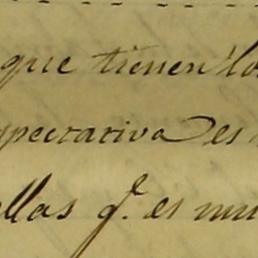 que tienen lo
pectativa es
ellas q.e es mu